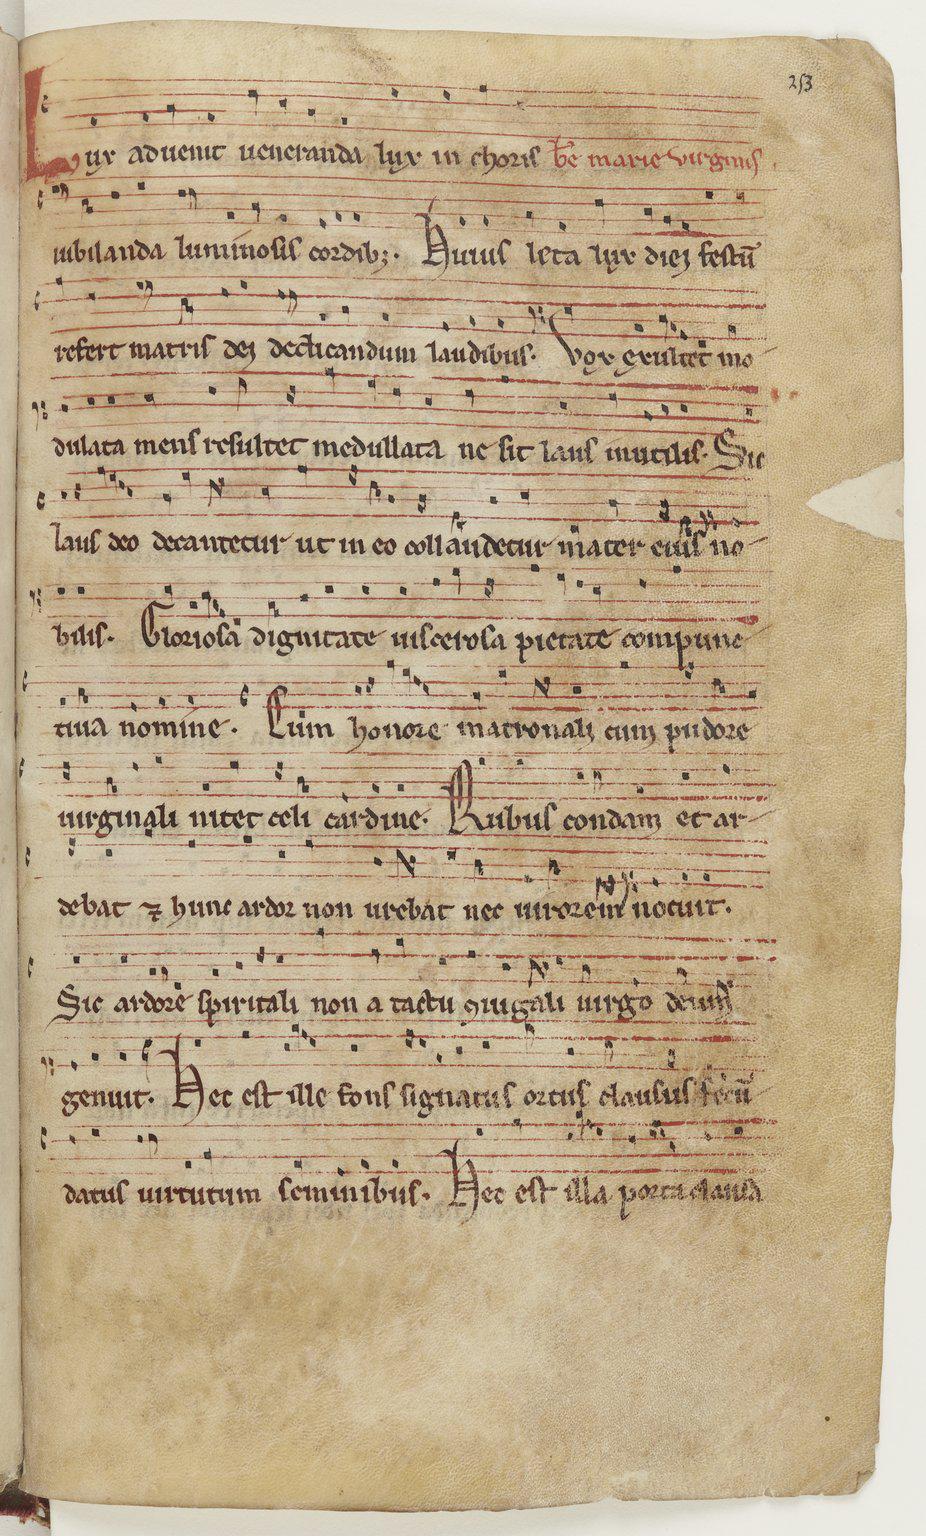 253
Lux aduenit ueneranda lux in choris bē marie virginis
iubilanda luminosis cordibꝫ. Huius leta lux diei festū
refert matris dei dedicandum laudibus. Vox exultet mo-
dulata mens resultet medullata ne sit laus inutilis. Sic
laus deo decantetur ut in eo collaudetur mater eius no-
bilis. Gloriosa dignitate uiscerosa pietate compunc-
tiua nomine. Cum honore matronali cum pudore
uirginali nitet celi cardine. Rubus condam et ar-
debat ⁊ hunc ardor non urebat nec uirorem nocuit.
Sic ardore spiritali non a tactu ꝯiugali uirgo deum
genuit. Hec est ille fons signatus ortus clausus fecū-
datus uirtutum seminibus. Hec est illa porta clausa